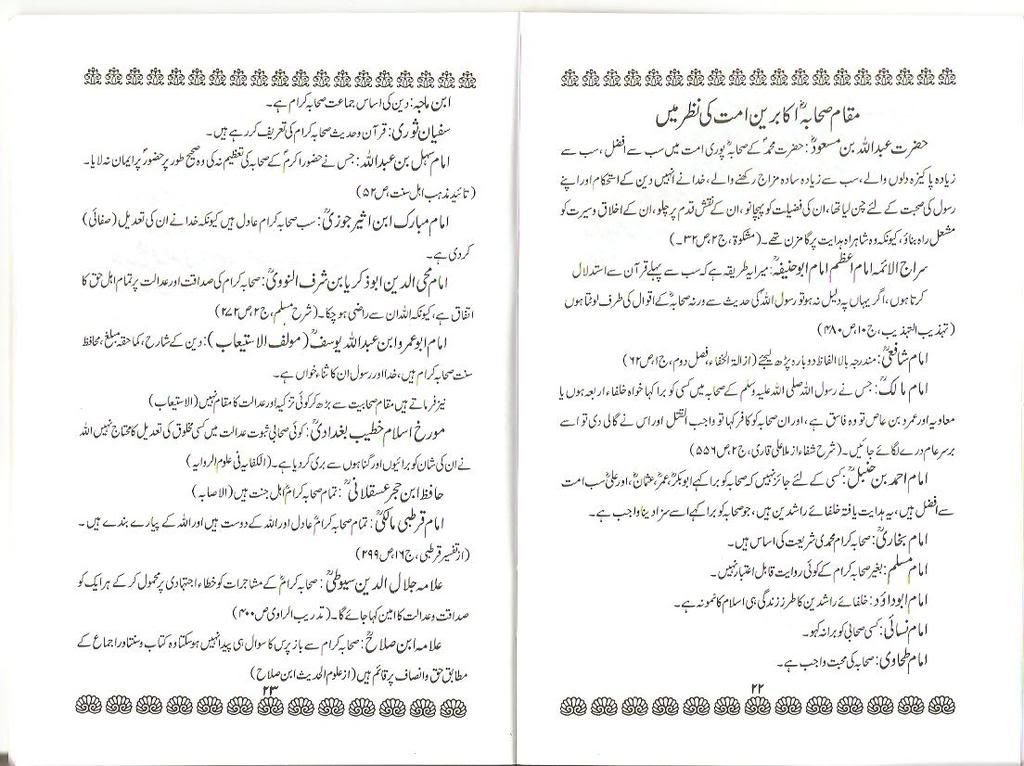 مقام صحابہؓ اکابرین امت کی نظر میں
حضرت عبداللہ بن مسعودؓ: حضرت محمدؐ کے صحابہؓ پوری امت میں سب سے افضل، سب سے
زیادہ پاکیزہ دلوں والے، سب سے زیادہ سادہ مزاج رکھنے والے، خدا نے انہیں دین کے استحکام اور اپنے
رسول کی صحبت کے لئے چن لیا تھا، ان کی فضیلات کو پہچانو، ان کے نقش قدم پر چلو، ان کے اخلاق و سیرت کو
مشعل راہ بناؤ، کیونکہ وہ شاہراہ ہدایت پر گامزن تھے۔ (مشکوۃ، ج۲، ص۳۲۔)
سراج الائمہ امام اعظم امام ابوحنیفہؒ: میرا یہ طریقہ ہے کہ سب سے پہلے قرآن سے استدلال
کرتا ہوں، اگر یہاں یہ دلیل نہ ہو تو رسول اللہ کی حدیث سے ورنہ صحابہؓ کے اقوال کی طرف لوٹتا ہوں
(تہذیب التہذیب، ج۱۰ص۴۸۰)
امام شافعیؒ: مندرجہ بالا الفاظ دوبارہ پڑھ لیجئے (ازالۃ الخفاء، فصل دوم، ج۱، ص۶۲)
امام مالکؒ: جس نے رسول اللہ صلی اللہ علیہ وسلم کے صحابہ میں کسی کو برا کہا خواہ خلفاء اربعہ ہوں یا
معاویہ اور عمرو بن عاص تو وہ فاسق ہے، اور ان صحابہ کو کافر کہا تو واجب القتل اور اس نے گالی دی تو اسے
برسر عام درے لگائے جائیں۔ (شرح شفاء از ملا علی قاری، ج۲، ص۵۵۶)
امام احمد بن حنبلؒ: کسی کے لئے جائز نہیں کہ صحابہ کو برا کہے ابوبکرؓ، عمرؓ، عثمانؓ، اور علیؓ سب امت
سے افضل ہیں، یہ ہدایت یافتہ خلفائے راشدین ہیں، جو صحابہ کو برا کہے اسے سزا دینا واجب ہے۔
امام بخاریؒ: صحابہ کرام محمدی شریعت کی اساس ہیں۔
امام مسلم: بغیر صحابہ کرام کے کوئی روایت قابل اعتبار نہیں۔
امام ابوداؤد: خلفائے راشدین کا طرز زندگی ہی اسلام کا نمونہ ہے۔
امام نسائی: کسی صحابی کو برا نہ کہو۔
امام طحاوی: صحابہ کی محبت واجب ہے۔
۲۲
ابن ماجہ: دین کی اساس جماعت صحابہ کرام ہے۔
سفیان ثوری: قرآن و حدیث صحابہ کرام کی تعریف کر رہے ہیں۔
امام سہل بن عبداللہ: جس نے حضور اکرمؐ کے صحابہ کی تعظیم نہ کی وہ صحیح طور پر حضورؐ پر ایمان نہ لایا۔
(تائید مذہب اہل سنت، ص۵۲)
امام مبارک ابن اثیر جوزیؒ: سب صحابہ کرام عادل ہیں کیونکہ خدا نے ان کی تعدیل (صفائی)
کر دی ہے۔
امام محی الدین ابوذکریا بن شرف النوویؒ: صحابہ کرام کی صداقت اور عدالت پر تمام اہل حق کا
اتفاق ہے، کیونکہ اللہ ان سے راضی ہو چکا۔ (شرح مسلم، ج۲، ص۲۷۲)
امام ابوعمرو ابن عبداللہ یوسفؒ (مولف الاستیعاب): دین کے شارح، کما حقہ مبلغ، محافظ
سنت صحابہ کرام ہیں، خدا اور رسول ان کا ثناء خواں ہے۔
نیز فرماتے ہیں مقام صحابیت سے بڑھ کر کوئی تزکیہ اور عدالت کا مقام نہیں (الاستیعاب)
مورخ اسلام خطیب بغدادیؒ: کوئی صحابی ثبوت عدالت میں کسی مخلوق کی تعدیل کا محتاج نہیں اللہ
نے ان کی شان کو برائیوں اور گناہوں سے بری کر دیا ہے۔ (الکفایہ فی علوم الروایہ)
حافظ ابن حجر عسقلانیؒ: تمام صحابہ کرامؓ اہل جنت ہیں (الاصابہ)
امام قرطبی مالکیؒ: تمام صحابہ کرامؓ عادل اور اللہ کے دوست ہیں اور اللہ کے پیارے بندے ہیں۔
(از تفسیر قرطبی، ج۱۶ص۲۹۹)
علامہ جلال الدین سیوطیؒ: صحابہ کرامؓ کے مشاجرات کو خطاء اجتہادی پر محمول کر کے ہر ایک کو
صداقت و عدالت کا امین کہا جائے گا۔ (تدریب الراوی ص۴۰۰)
علامہ ابن صلاحؒ: صحابہ کرام سے باز پرس کا سوال ہی پیدا نہیں ہو سکتا وہ کتاب و سنت اور اجماع کے
مطابق حق و انصاف پر قائم ہیں (از علوم الحدیث ابن صلاح)
۲۳